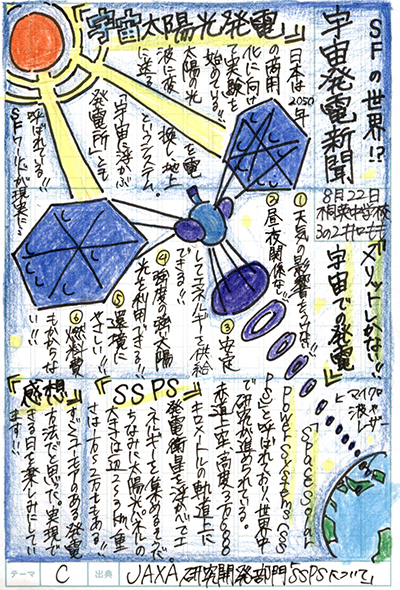 SFの世界!?
宇宙発電新聞
8月22日
3の2
『宇宙太陽光発電』
日本は2050年
の商用
化に向け
て実験を
始めている!!
太陽の光
を電
波に変換し地上
に送る
というシステム。
「宇宙に浮かぶ
発電所」とも
呼ばれている!!
SFワールドが現実に…
『メリットしかない!!
宇宙での発電』
①天気の影響をうけない!!
②昼夜関係なし!!
③安定
してエネルギーを供給
できる!!
④強度の強い太陽
光を利用できる!!
⑤環境に
やさしい!!
⑥燃料費
もかからな
い!!
マイクロ波
レーザー
『SSPS』
Space Solar
Power Systems(SS
PS)と呼ばれており世界中
で研究が進められている。
赤道上空高度3万6000
キロメートルの軌道上に
発電衛星を浮かべてエ
ネルギーを集めるそうだ。
ちなみに太陽光パネルの
大きさは一辺2~3km、重
さは1万~2万tもある!!
『感想』
すごくユーモアのある発電
方法だと思った。実現で
きる日を楽しみにしてい
ます!!
テーマ C 出典 JAXA研究開発部門「SSPSについて」